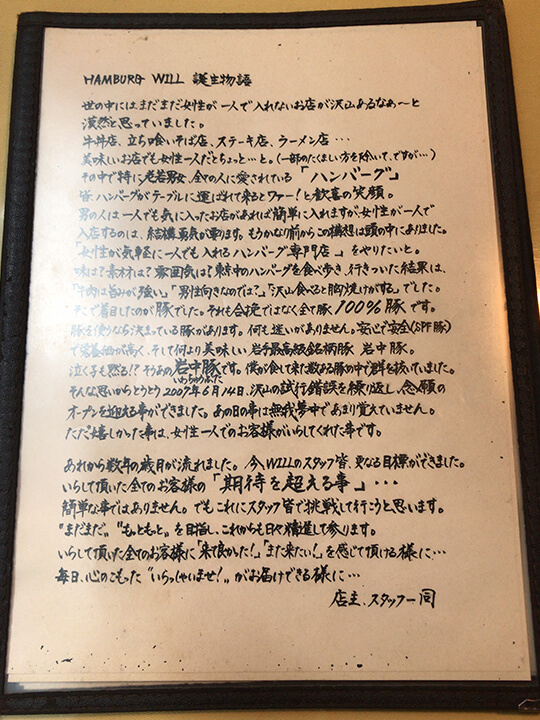 HAMBURG WILL 誕生物語
世の中にはまだまだ女性が一人で入れないお店が沢山あるなぁ〜と
漠然と思っていました。
牛丼店、立ち喰いそば店、ステーキ店、ラーメン店・・・
美味しいお店でも女性一人だとちょっと…と。(一部のたくましい方を除いて、ですが…)
その中で特に老若男女、全ての人に愛されている「ハンバーグ」
皆、ハンバーグがテーブルに運ばれて来るとワァー!と歓喜の笑顔。
男の人は一人でも気に入ったお店があれば簡単に入れますが、女性が一人で
入店するのは、結構勇気が要ります。もうかなり前からこの構想は頭の中にありました。
「女性が気軽に一人でも入れるハンバーグ専門店」をやりたいと。
味は?素材は?雰囲気は?東京中のハンバーグを食べ歩き、行きついた結果は、
「牛肉は旨みが強い」「男性向きなのでは?」「沢山食べると胸焼けがする」でした。
そこで着目したのが豚でした。それも合挽ではなく全て豚100%豚です。
豚を使うなら決まっている豚があります。何も迷いがありません。安心で安全(SPF豚)
で栄養価が高く、そして何より美味しい岩手最高級銘柄豚 岩中豚。
泣く子も黙る!?そうあの岩中豚です。僕が食して来た数ある豚の中で群を抜いていました。
いわちゅうぶた
そんな思いからとうとう2007年6月14日、沢山の試行錯誤を繰り返し、念願の
オープンを迎える事ができました。あの日の事は無我夢中であまり覚えていません。
ただ嬉しかった事は、女性一人でのお客様がいらしてくれた事です。
あれから数年の歳月が流れました。今WILLのスタッフ皆、更なる目標ができました。
いらして頂いた全てのお客様の「期待を超える事」・・・
簡単な事ではありません。でもこれにスタッフ皆で挑戦して行こうと思います。
"まだまだ" "もっともっと"を目指し、これからも日々精進して参ります。
いらして頂いた全てのお客様に「来て良かった!」「また来たい!」を感じて頂ける様に…
毎日、心のこもった"いらっしゃいませ!"がお届けできる様に…
店主、スタッフ一同